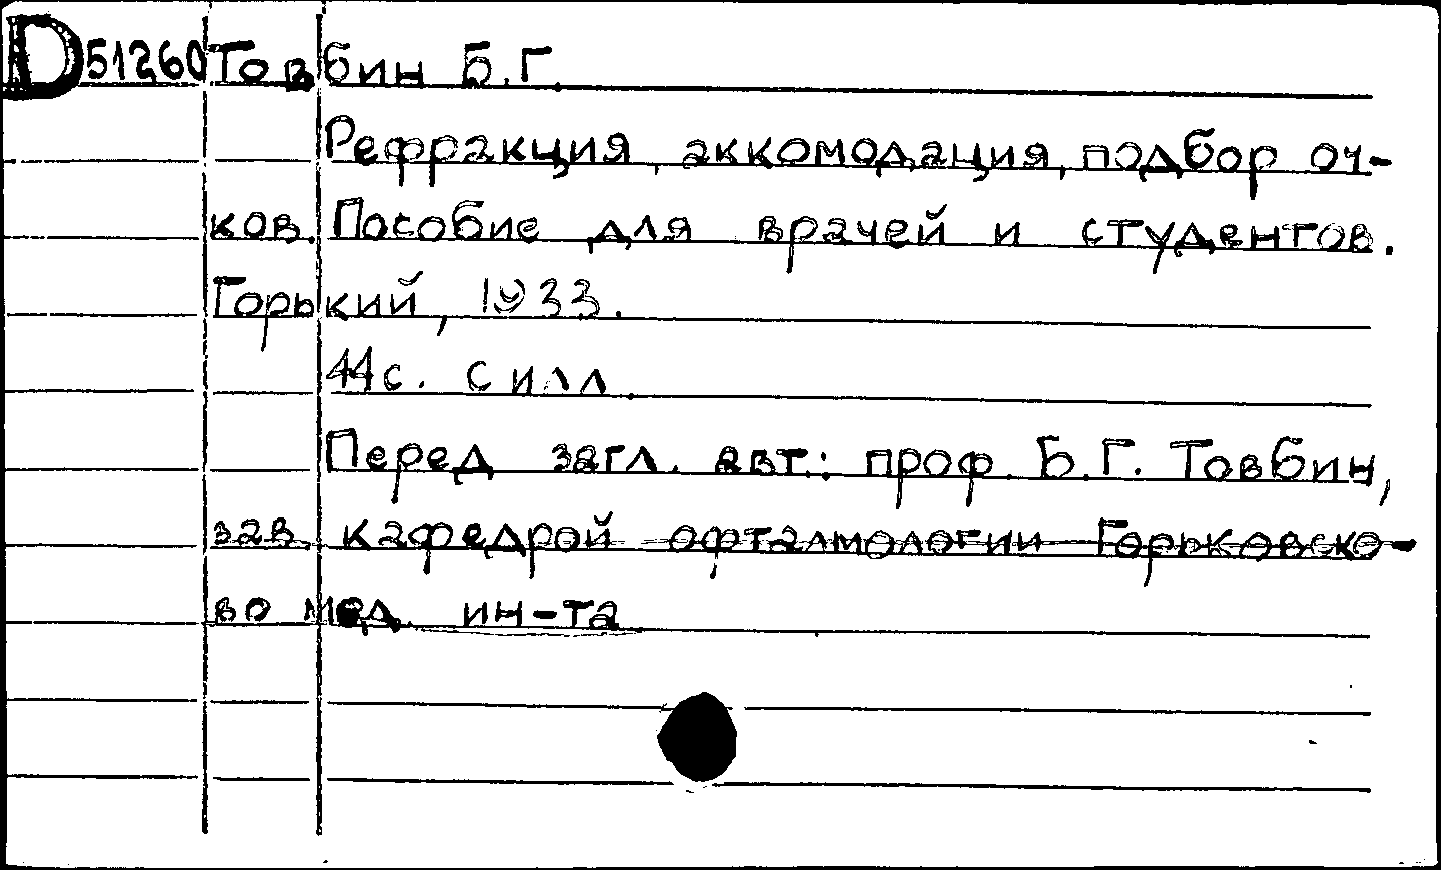 D51260 Товбин Б.Г.
Рефракция, аккомодация, подбор оч-
ков. Пособие для врачей и студентов.
Горький, 1933.
44с. с илл.
Перед загл. авт.: проф. Б.Г. Товбин,
зав. кафедрой офталмологии Горьковско-
во мед. ин-та